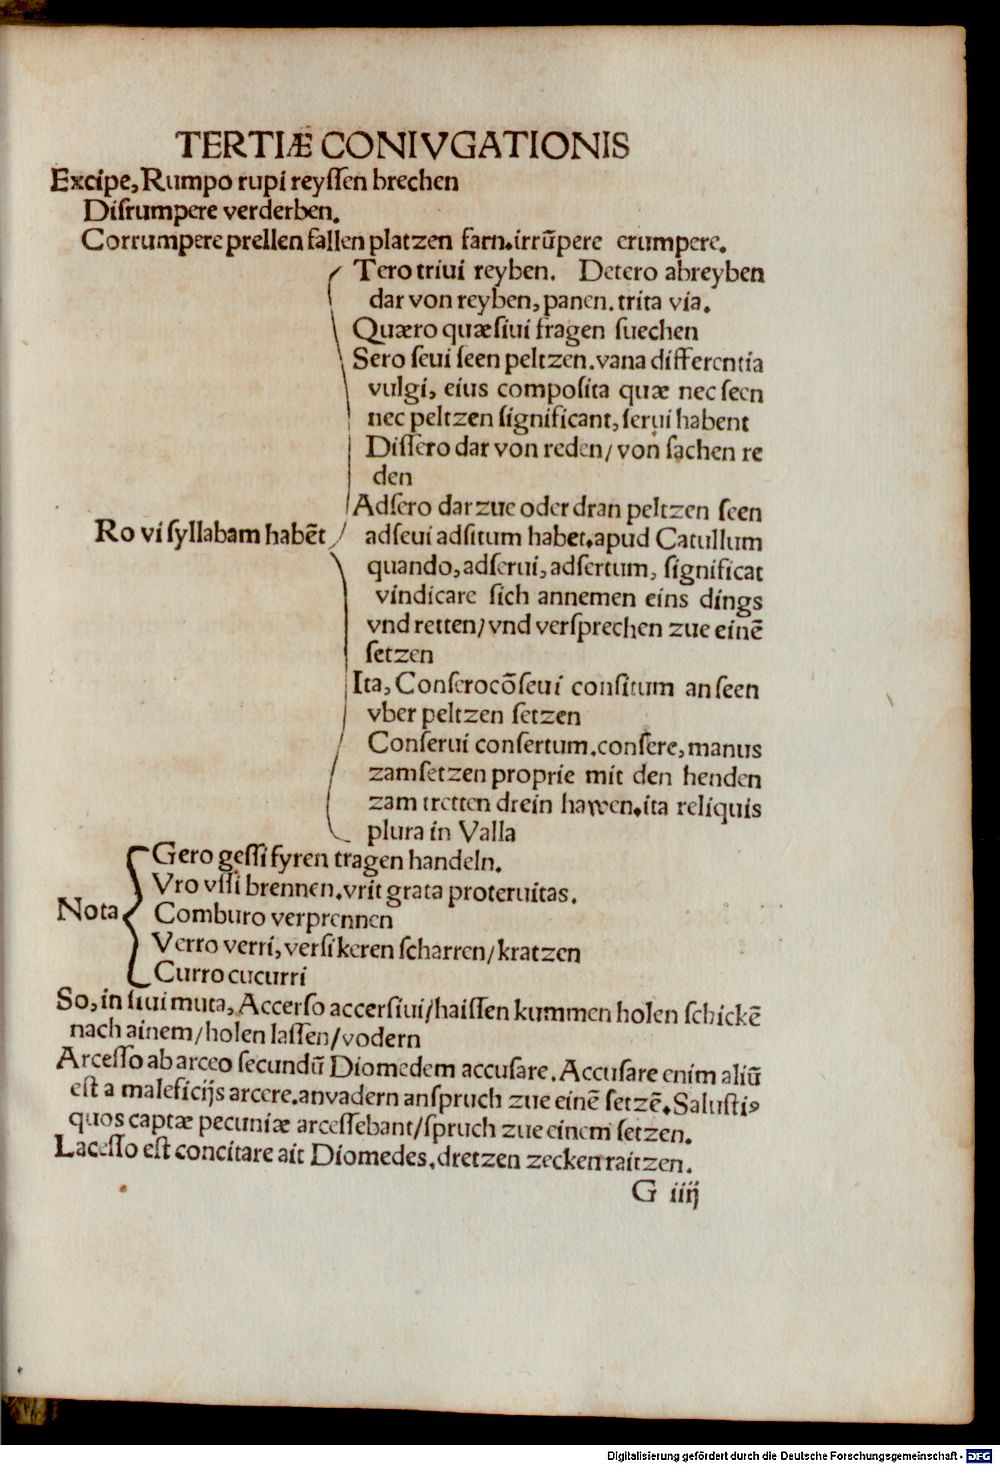 TERTIÆ CONIVGATIONIS
Excipe, Rumpo rupi reyſſen brechen
Diſrumpere verderben.
Corrumpere prellen fallen platzen farn. irrūpere erumpere.
Tero triui reyben. Detero abreyben
dar von reyben, panen. trita via.
Quæro quæſiui fragen ſuechen
Sero ſeui ſeen peltzen. vana differentia
vulgi, eius compoſita quæ nec ſeen
nec peltzen ſignificant, ſerui habent
Diſſero dar von reden/ von ſachen re
den
Adſero dar zue oder dran peltzen ſeen
Ro vi ſyllabam habēt
adſeui adſitum habet. apud Catullum
quando, adſerui, adſertum, ſignificat
vindicare ſich annemen eins dings
vnd retten/ vnd verſprechen zue einē
ſetzen
Ita, Conſero cōſeui conſitum an ſeen
vber peltzen ſetzen
Conſerui conſertum. conſere, manus
zamſetzen proprie mit den henden
zam tretten drein hawen. ita reliquis
plura in Valla
Gero geſſi fyren tragen handeln.
Vro vſſi brennen. vrit grata proteruitas.
Nota
Comburo verprennen
Verro verri, verſi keren ſcharren/ kratzen
Curro cucurri
So, in ſiui muta, Accerſo accerſiui/ haiſſen kummen holen ſchickē
nach ainem/ holen laſſen/ vodern
Arceſſo ab arceo ſecundū Diomedem accuſare. Accuſare enim aliū
eſt a maleficijs arcere. anvadern anſpruch zue einē ſetzē. Saluſtiꝰ
quos captæ pecuniæ arceſſebant/ ſpruch zue einem ſetzen.
Laceſſo eſt concitare ait Diomedes. dretzen zecken raitzen.
G iiij
Digitalisierung gefördert durch die Deutsche Forschungsgemeinschaft - DFG